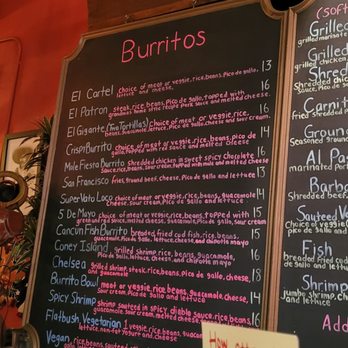 Burritos
El Cartel choice of meat or veggie, rice, beans, Pico de gallo, 13
lettuce and cheese.
El Patron steak, rice, beans, Pico de gallo, topped with 16
homemade recipe pork sauce and melted cheese.
El Gigante (Two Tortillas) choice of meat or veggie, rice, 16
beans, guacamole, lettuce, Pico de gallo, cheese and sour cream.
Crispi Burrito choice of meat or veggie, rice, beans, pico de 14
gallo, topped with
Mole Fiesta Burrito Shredded chicken in sweet spicy Chocolate 16
sauce, rice, beans, sour cream, topped with mole and melted cheese
San Francisco fries, ground beef, Cheese, Pico de gallo and lettuce 13
Super Vato Loco choice of meat or veggie, rice, beans, guacamole, 14
cheese, Sour cream, Pico de gallo and lettuce
5 De Mayo choice of meat or veggie, rice, beans, topped with 15
green and red sauce, melted cheese, guacamole, Pico de gallo, sour cream
Cancun Fish Burrito breaded fried cod fish, rice, beans, 15
guacamole, Pico de gallo, lettuce, cheese, and chipotle mayo
Coney Island grilled shrimp, rice, beans, guacamole, 16
Pico de gallo, lettuce, cheese, and chipotle mayo
Chelsea Grilled shrimp, steak, rice, beans, Pico de gallo, cheese, 18
and guacamole
Burrito Bowl meat or veggie, rice, beans, guacamole, cheese, 14
Sour cream, Pico de gallo and lettuce
Spicy Shrimp Shrimp sauteed in spicy diablo sauce, rice, beans, 16
guacamole, Pico de gallo, sour cream, melted cheese,
Flatbush Vegetarian veggie, rice, beans, guacamole,
lettuce, non-fat yogurt and cheese.
Vegan rice, beans,
(soft
Grilled
grilled marinate
Grilled
grilled chicken
Shredd
shredded chicken
Carnit
fried
Groun
Seasoned ground
Al Pas
marinated
Barba
Shredded
Sauteed V
choice of veggie
pico de gallo
Fish
fried cod
and lettuce
Shrimp
jumbo shrimp, ch
and lettuce
Add